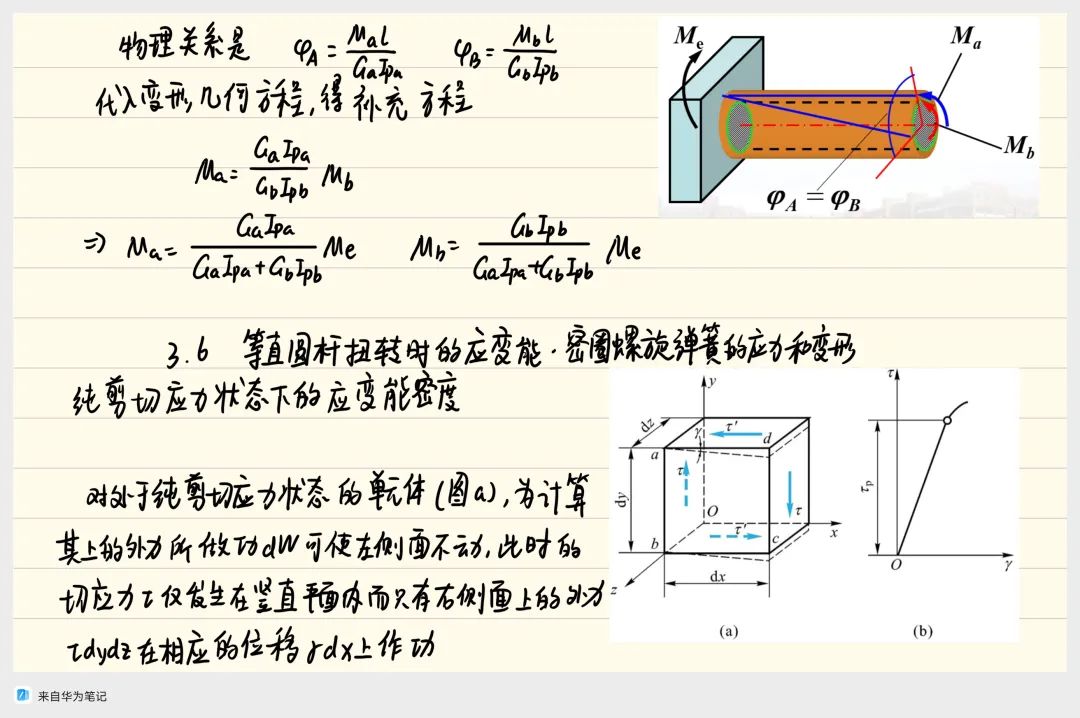 物理关系是 φA=Mal/GaIpa φB=Mbl/GbIpb
代入变形几何方程,得补充方程
Ma=GaIpa/GbIpb Mb
⇒ Ma=GaIpa/GaIpa+GbIpb Me Mb=GbIpb/GaIpa+GbIpb Me
Me
Ma
Mb
φA=φB
3.6 等直圆杆扭转时的应变能·密圈螺旋弹簧的应力和变形
纯剪切应力状态下的应变能密度
对处于纯剪切应力状态的单元体(图a),为计算
其上的外力所做功dW可使左侧面不动,此时的
切应力τ仅发生在竖直平面内而只有右侧面上的外力
τdydz在相应的位移γdx上作功
y
dz
γ
τ′
d
a
τ
dy
O
τ
x
τ′
b
c
z
dx
(a)
τ
τp
O
γ
(b)
来自华为笔记